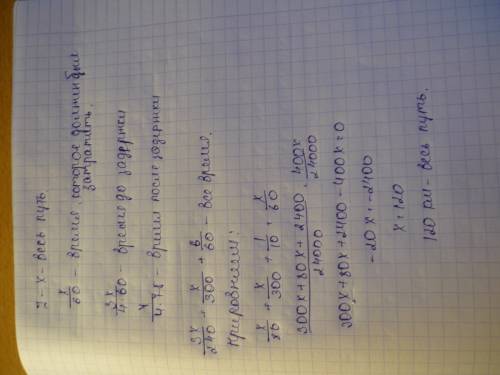 x - весь путь
x/60 - время, которое должен был
затратить.
3x/4·60 - время до задержки
x/4·75 - время после задержки
3x/240 + x/300 + 6/60 - все время.
Приравниваем:
x/80 + x/300 + 1/10 = x/60
300x + 80x + 2400/24000 = 400x/24000
300x + 80x + 2400 - 400x = 0
-20x = -2400
x = 120
120 км - весь путь.